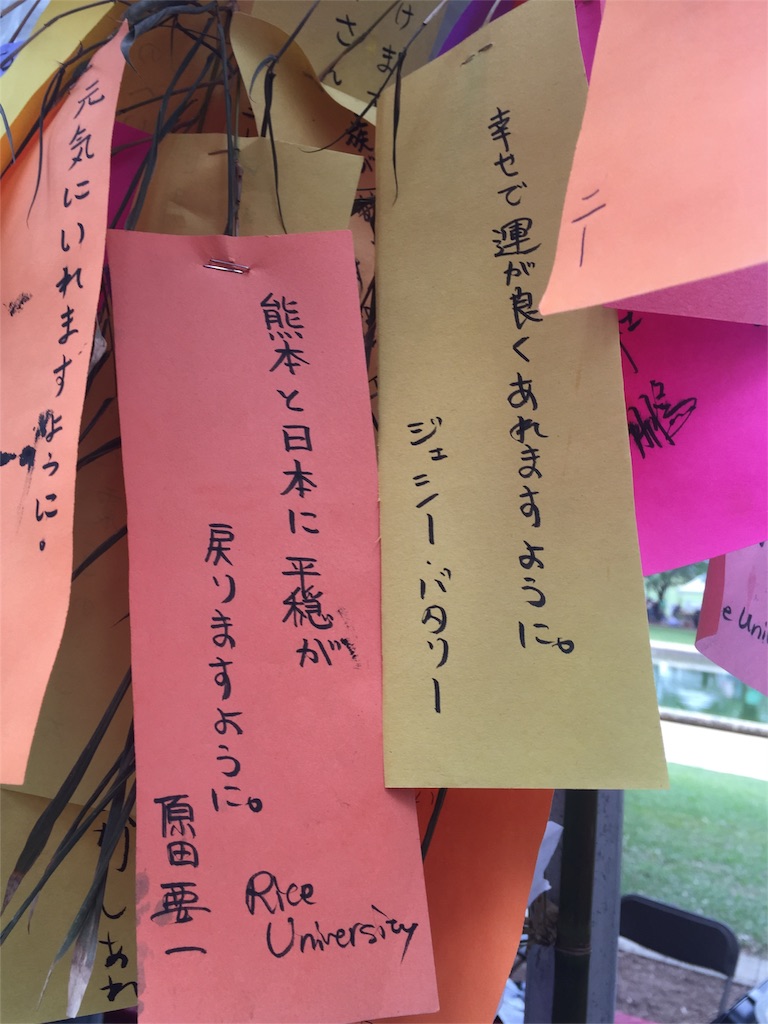 幸せで運が良くあれますように。
ジェシー・バタリー
熊本と日本に平穏が
戻りますように。
原田要一
Rice
University
元気にいれますように。